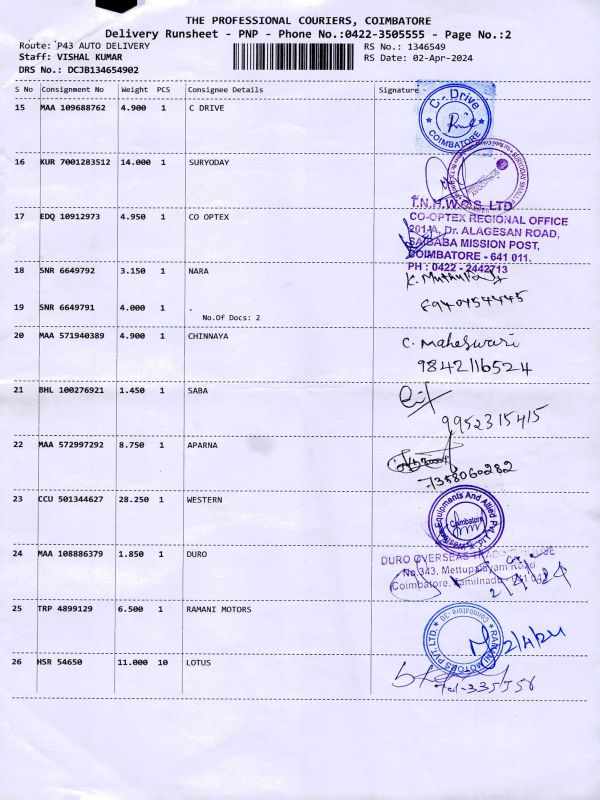 THE PROFESSIONAL COURIERS, COIMBATORE
Delivery Runsheet - PNP - Phone No.:0422-3505555 - Page No.:2
Route: P43 AUTO DELIVERY RS No.: 1346549
Staff: VISHAL KUMAR RS Date: 02-Apr-2024
DRS No.: DCJB134654902
S No Consignment No Weight PCS Consignee Details Signature
15 MAA 109688762 4.900 1 C DRIVE
C - Drive
COIMBATORE
16 KUR 7001283512 14.000 1 SURYODAY
17 EDQ 10912973 4.950 1 CO OPTEX
T.N.H.W.C.S. LTD
CO-OPTEX REGIONAL OFFICE
201-A, Dr. ALAGESAN ROAD,
SAIBABA MISSION POST,
COIMBATORE - 641 011.
PH : 0422 - 2442713
18 SNR 6649792 3.150 1 NARA
19 SNR 6649791 4.000 1 .
No.Of Docs: 2
20 MAA 571940389 4.900 1 CHINNAYA
C. Maheswari
9842116524
21 BHL 100276921 1.450 1 SABA
9952315415
22 MAA 572997292 8.750 1 APARNA
7358060282
23 CCU 501344627 28.250 1 WESTERN
Equipments And Allied
Coimbatore
24 MAA 108886379 1.850 1 DURO
DURO OVERSEAS TRADING HOUSE
No 343, Mettupalayam Road
Coimbatore, Tamilnadu - 641 043
2/4/24
25 TRP 4899129 6.500 1 RAMANI MOTORS
RAMANI MOTORS PVT. LTD.
Coimbatore - 30
2/4/24
26 HSR 54650 11.000 10 LOTUS